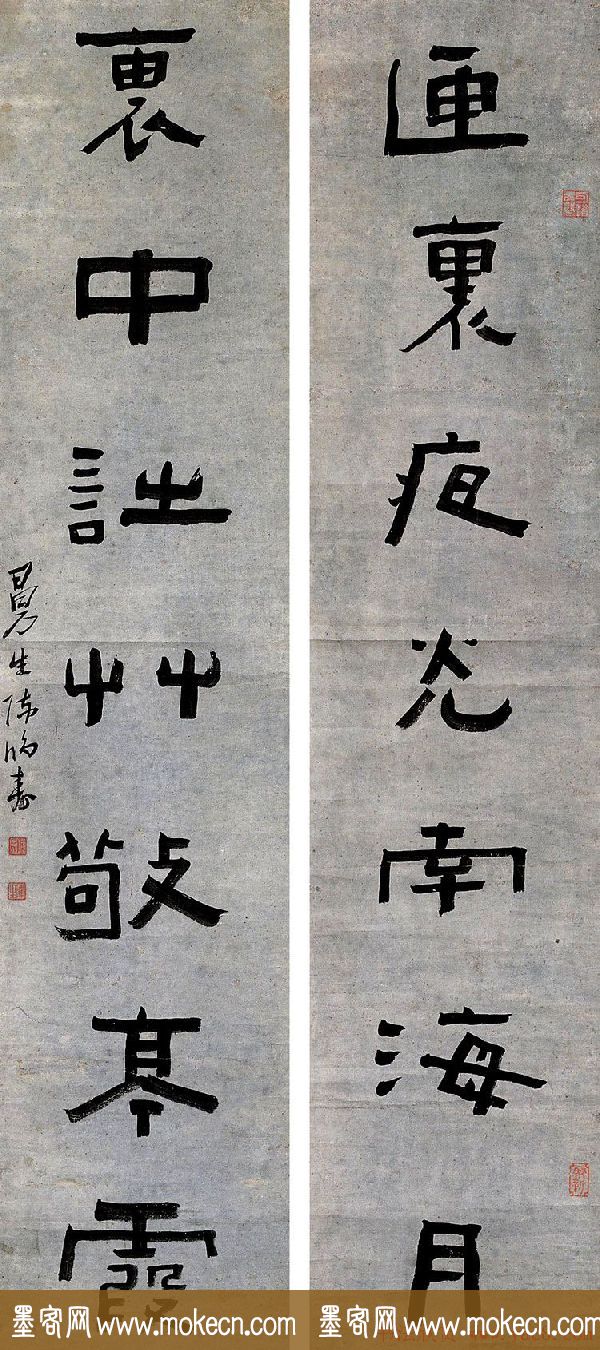 匣裏夜光南海月
中詩艸敬亭霞
曼生陳鴻壽
墨客网 www.mokecn.com
墨客网 www.mokecn.com